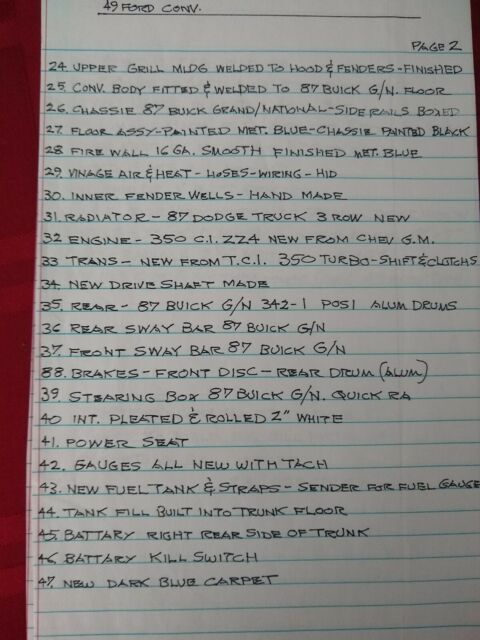 49 FORD CONV.
PAGE 2
24. UPPER GRILL MLDG WELDED TO HOOD & FENDERS - FINISHED
25 CONV. BODY FITTED & WELDED TO 87 BUICK G/N. FLOOR
26. CHASSIE 87 BUICK GRAND/NATIONAL - SIDE RAILS BOXED
27. FLOOR ASSY - PAINTED MET. BLUE - CHASSIE PAINTED BLACK
28 FIRE WALL 16 GA. SMOOTH FINISHED MET. BLUE
29. VINAGE AIR & HEAT - HOSES - WIRING - HID
30. INNER FENDER WELLS - HAND MADE
31. RADIATOR - 87 DODGE TRUCK 3 ROW NEW
32 ENGINE - 350 C.I. ZZ4 NEW FROM CHEV G.M.
33 TRANS - NEW FROM T.C.I. 350 TURBO - SHIFT & CLUTCHS
34. NEW DRIVE SHAFT MADE
35. REAR - 87 BUICK G/N 342-1 POSI ALUM DRUMS
36 REAR SWAY BAR 87 BUICK G/N
37. FRONT SWAY BAR 87 BUICK G/N
88. BRAKES - FRONT DISC - REAR DRUM (ALUM)
39. STEARING BOX 87 BUICK G/N. QUICK RA
40 INT. PLEATED & ROLLED 2" WHITE
41. POWER SEAT
42. GAUGES ALL NEW WITH TACH
43. NEW FUEL TANK & STRAPS - SENDER FOR FUEL GAUGE
44. TANK FILL BUILT INTO TRUNK FLOOR
45. BATTARY RIGHT REAR SIDE OF TRUNK
46. BATTARY KILL SWITCH
47. NEW DARK BLUE CARPET